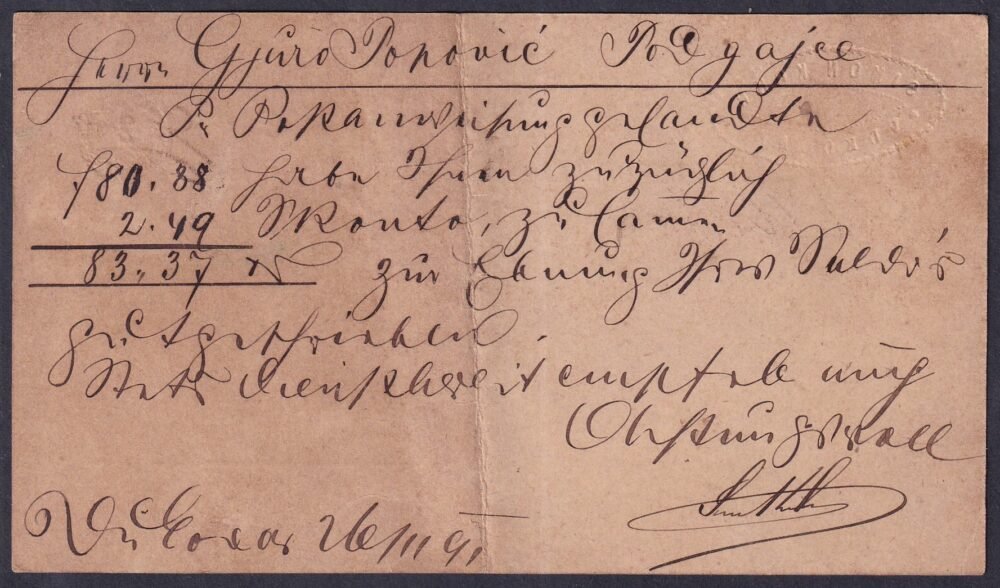 Herrn Gjuro Popović Podgajce
Pr Postanweisung gesandte
f 80.88 habe Ihnen zuzüglich
2.49 Skonto, zusammen
83.37 zur Ebnung Ihres Saldo's
gutgeschrieben.
Stets dienstbereit empfehle mich
Achtungsvoll
Vukovar 26/III 91